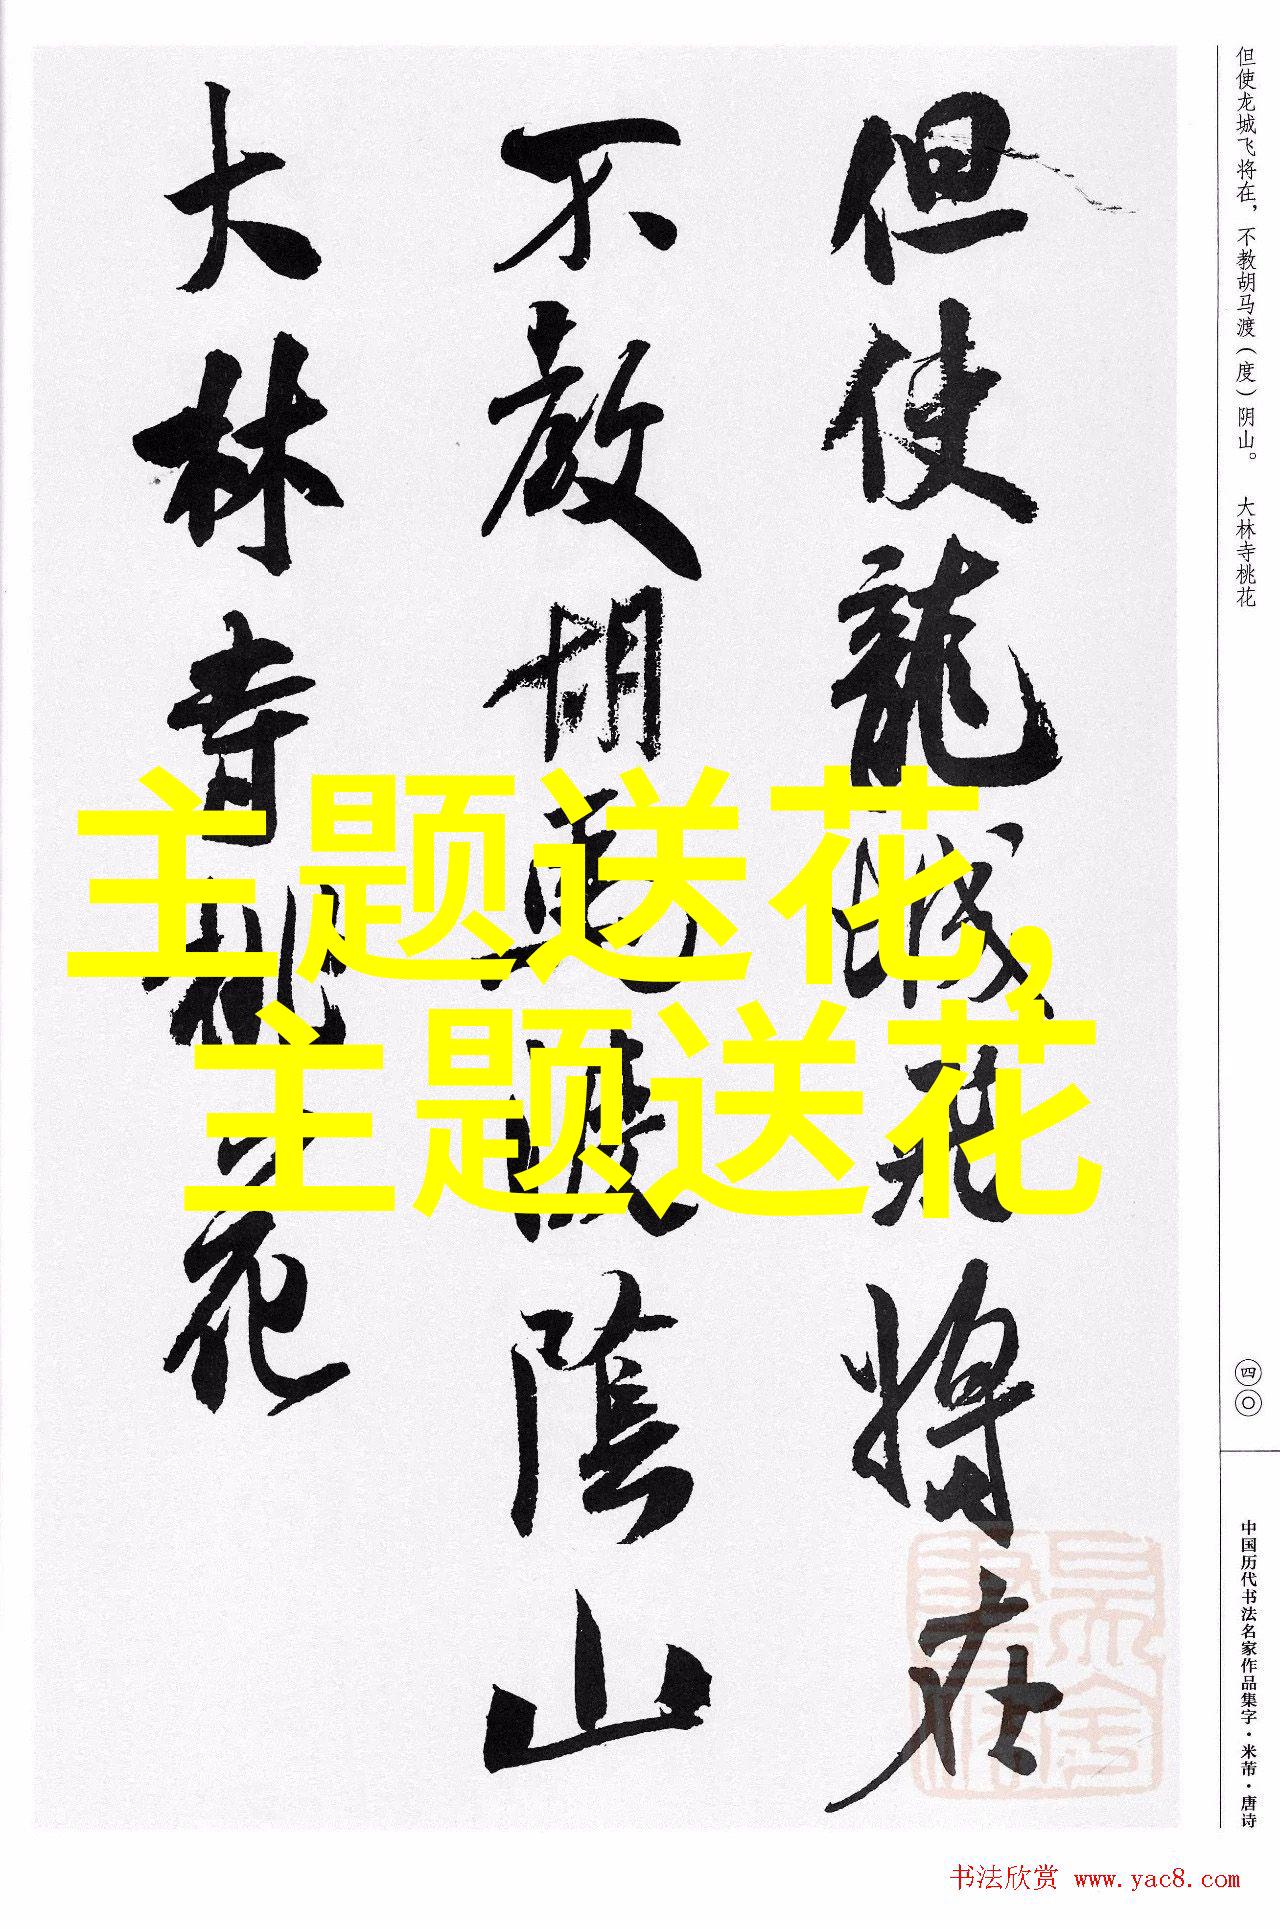 但使龍城飛將在
不教胡馬渡陰山
大林寺桃花
但使龙城飞将在，不教胡马渡（度）阴山。 大林寺桃花
四〇
中国历代书法名家作品集字·米芾·唐诗
主题送花,
主题送花
书法欣赏 www.yac8.com